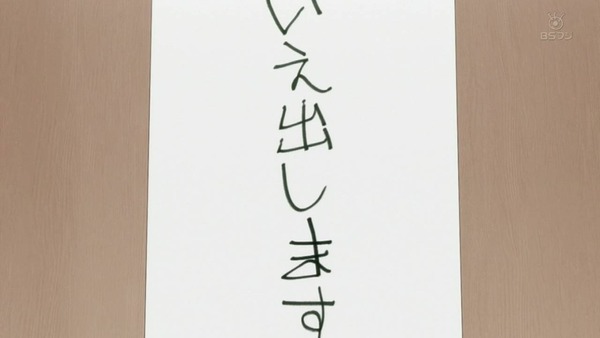 いえ出します
BSフジ